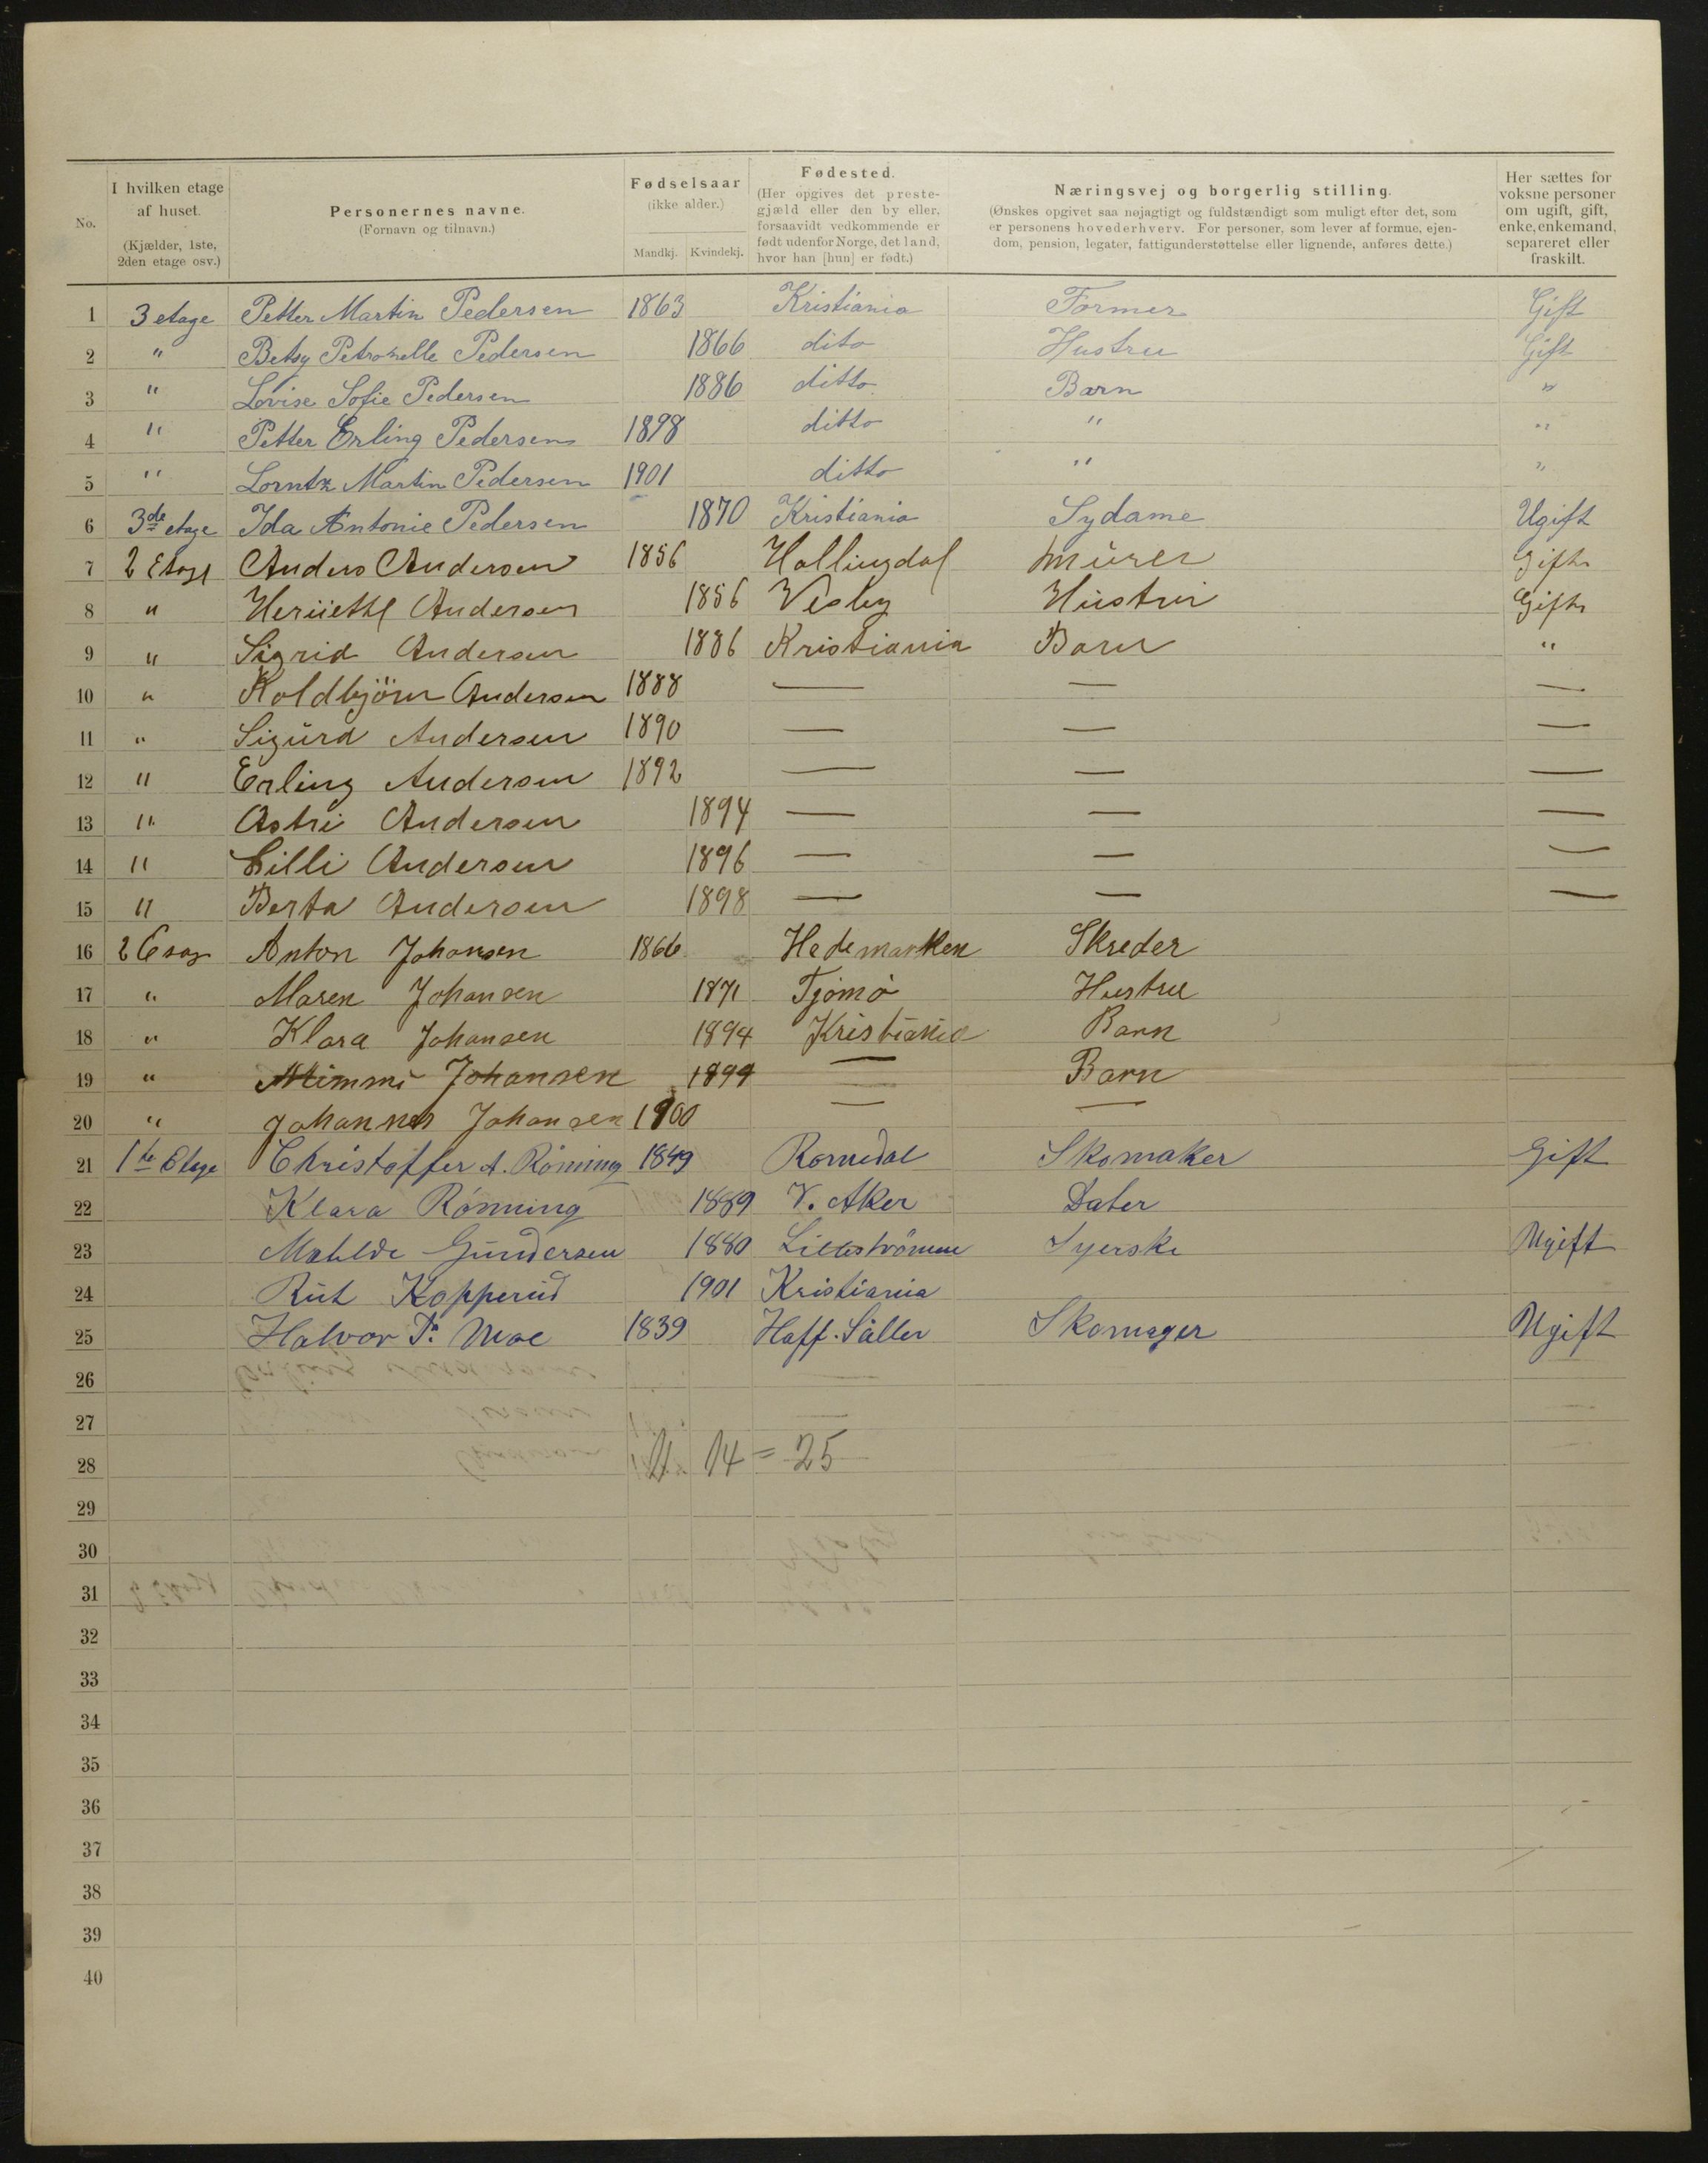 No.
I hvilken etage af huset.
(Kjælder, 1ste, 2den etage osv.)
Personernes navne.
(Fornavn og tilnavn.)
Fødselsaar
(ikke alder.)
Mandkj. Kvindekj.
Fødested.
(Her opgives det prestegjæld eller den by eller, forsaavidt vedkommende er født udenfor Norge, det land, hvor han [hun] er født.)
Næringsvej og borgerlig stilling.
(Ønskes opgivet saa nøjagtigt og fuldstændigt som muligt efter det, som er personens hovederhverv. For personer, som lever af formue, ejendom, pension, legater, fattigunderstøttelse eller lignende, anføres dette.)
Her sættes for voksne personer om ugift, gift, enke, enkemand, separeret eller fraskilt.
1 3 etage Petter Martin Pedersen 1863 Kristiania Former Gift
2 " Betsy Petronelle Pedersen 1866 dito Hustru Gift
3 " Lovise Sofie Pedersen 1886 ditto Barn "
4 " Petter Erling Pedersen 1898 ditto " "
5 " Lorntz Martin Pedersen 1901 ditto " "
6 3de etage Ida Antonie Pedersen 1870 Kristiania Sydame Ugift
7 2 Etage Anders Andersen 1856 Hallingdal Murer Gift
8 " Andersen 1856 Visby Hustru Gift
9 " Sigrid Andersen 1886 Kristiania Barn "
10 " Koldbjörn Andersen 1888 — — —
11 " Sigurd Andersen 1890 — — —
12 " Erling Andersen 1892 — — —
13 " Astri Andersen 1894 — — —
14 " Lilli Andersen 1896 — — —
15 " Berta Andersen 1898 — — —
16 2 Anton Johansen 1866 Hedemarken Skreder
17 " Maren Johansen 1871 Tjömö Hustru
18 " Klara Johansen 1894 Kristiania Barn
19 " Mimmi Johansen 1899 — Barn
20 " Johannes Johansen 1900 — —
21 1te Etage Christoffer A. Rönning 1849 Romedal Skomaker Gift
22 Klara Rönning 1889 V. Aker Dater
23 Mahlde Gundersen 1880 Lilleströmme Syerske Ugift
24 Rut Kopperud 1901 Kristiania
25 Halvor P. Moe 1839 Haff. Säller Skomager Ugift
26
27
28 11 14 = 25
29
30
31
32
33
34
35
36
37
38
39
40